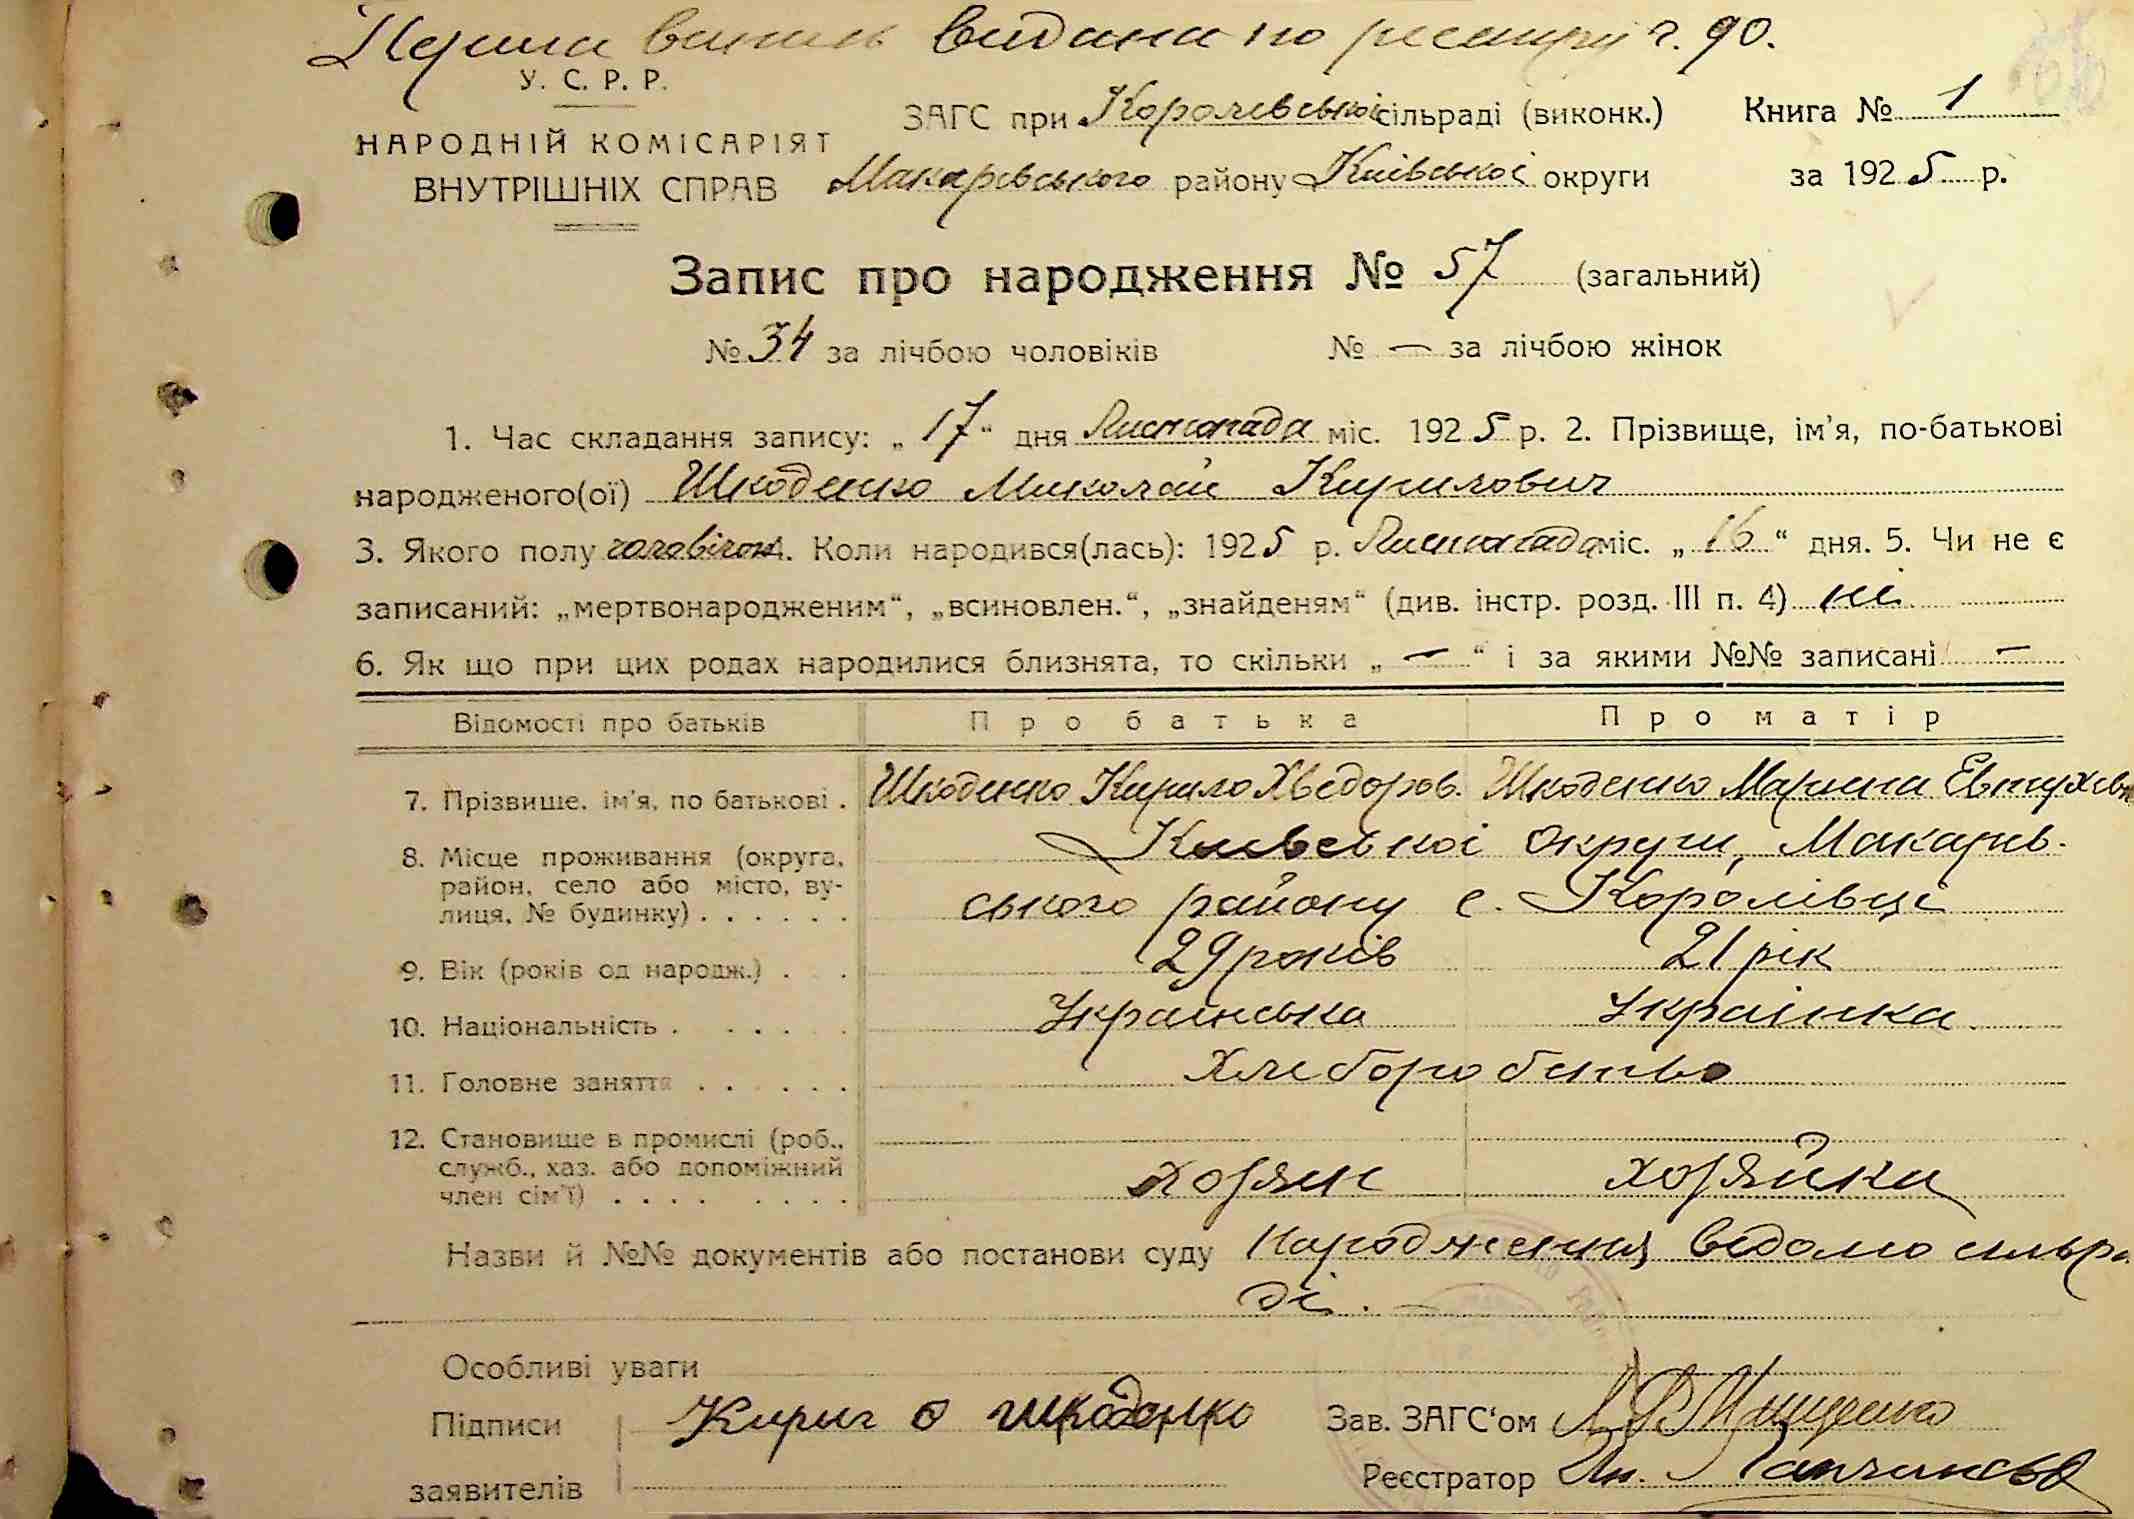 Перша випись видана по реєстру ч. 90.
У. С. Р. Р.
НАРОДНІЙ КОМІСАРІЯТ
ВНУТРІШНІХ СПРАВ
ЗАГС при Королевській сільраді (виконк.) Книга № 1
Макарівського району Київської округи за 1925 р.
Запис про народження № 57 (загальний)
№ 34 за лічбою чоловіків № — за лічбою жінок
1. Час складання запису: „17“ дня Листопада міс. 1925 р. 2. Прізвище, ім'я, по-батькові
народженого(ої) Шкоденко Миколай Кирилович
3. Якого полу чоловічої 4. Коли народився(лась): 1925 р. Листопада міс. „16“ дня. 5. Чи не є
записаний: „мертвонародженим“, „всиновлен.“, „знайденям“ (див. інстр. розд. III п. 4) ні
6. Як що при цих родах народилися близнята, то скільки „—“ і за якими №№ записані —
Відомості про батьків Про батька Про матір
7. Прізвище, ім'я, по батькові . Шкоденко Кирило Хведоров. Шкоденко Марина Евтухівн
8. Місце проживання (округа, район, село або місто, вулиця, № будинку) . . . . . . Київської округи, Макарів-
ського району с. Королівці
9. Вік (років од народж.) . . 29 років 21 рік
10. Національність . . . . . Українська Українка.
11. Головне заняття . . . . . . Хлеборобство
12. Становище в промислі (роб., служб., хаз. або допоміжний член сім'ї) . . . . . . . . хозяин хозяйка
Назви й №№ документів або постанови суду Народження ведомо сильра
ді. —
Особливі уваги
Підписи Кирил о шкоденко Зав. ЗАГС'ом
заявителів Реєстратор